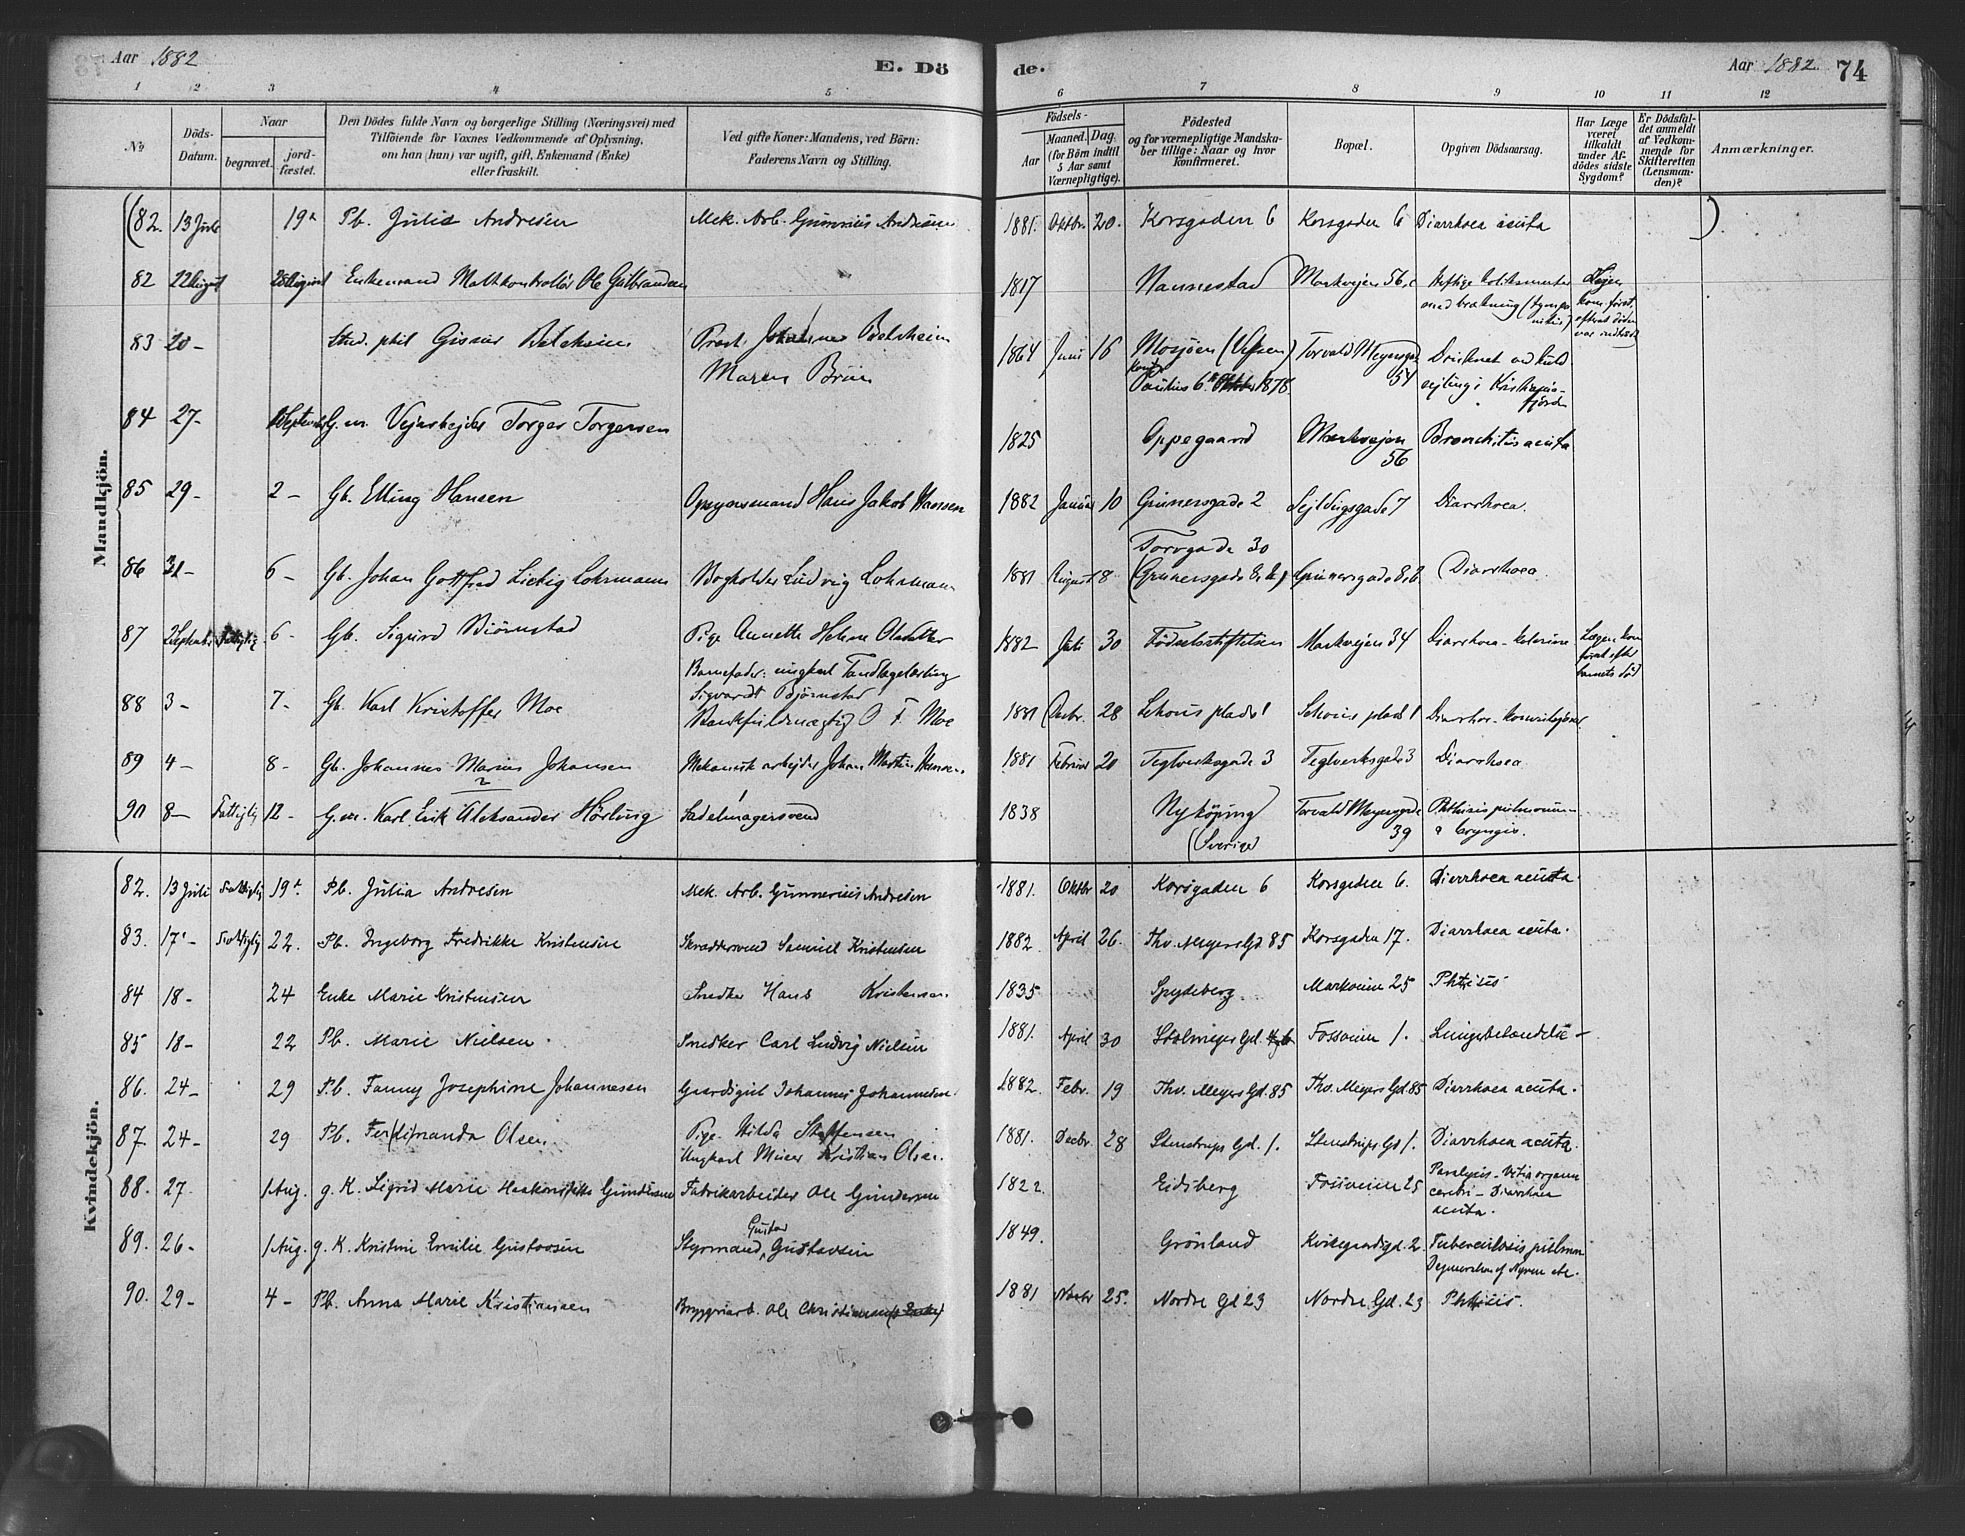 Aar 1882
E. Döde.
Aar 1882. 74
1 2 3 4 5 6 7 8 9 10 11 12
No
Döds-Datum.
Naar
begravet.
jordfæstet.
Den Dödes fulde Navn og borgerlige Stilling (Næringsvei) med
Tilföiende for Voxnes Vedkommende af Oplysning,
om han (hun) var ugift, gift, Enkemand (Enke)
eller fraskilt.
Ved gifte Koner: Mandens, ved Börn:
Faderens Navn og Stilling.
Födsels-
Aar
Maaned. Dag.
(for Börn indtil
5 Aar samt
Værnepligtige).
Födested
og for værnepligtige Mandska-
ber tillige: Naar og hvor
konfirmeret.
Bopæl.
Opgiven Dödsaarsag.
Har Læge
været
tilkaldt
under Af-
dödes sidste
Sygdom?
Er Dödsfal-
det anmeldt
af Vedkom-
mende for
Skifteretten
(Lensman-
den)?
Anmærkninger.
Mandkjön.
(82. 13 Juli 19de Pb. Julia Andresen Mek. Arb. Gunnerius Andresen 1881. Oktbr. 20. Korsgaden 6 Korsgaden 6 Diarrhoea acuta )
82 22 August 28 August Enkemand Maltkontrollör Ole Gulbrandsen 1817 Nannestad Markvejen 56, heftige koliksmerter
med brækning
Lægen
kom først
efterat döden
var indtraadt
83 20 - Stud. phil Gissur Belsheim Præst Johannes Belsheim 1864 Juni 16 Mosjöen (Vefsen) Torvald Meyersgade 54 Druknet ved kuld-
sejling i Kristiania-
fjorden
Maren Brun
Konf. Paulus 6te Oktbr 1878.
84 27 - 1 September G. m. Vejarbejder Torger Torgersen 1825 Oppegaard Markvejen 56 Bronchitis acuta
85 29 - 2 - Gb. Elling Hansen Opsynsmand Hans Jakob Hansen 1882 Januar 10 Grunersgade 2 Sejldugsgade 7 Diarrhoea.
86 31 - 6 - Gb. Johan Gottfred Liebig Lohrmann Bogholder Ludvig Lohrmann 1881 August 8 Torvgade 30
(Grunersgade 8, b) Grunersgade 8, b Diarrhoea.
87 2 September Fattiglig 6 - Gb. Sigurd Björnstad Pige Annette Helene Olsdatter 1882 Juli 30 Födselsstiftelsen Markvejen 34 Diarrhoea - Lægen kom
först efter
barnets död
Barnefader: ungkarl Tandlægelærling
Sigvardt Björnstad
88 3 - 7 - Gb. Karl Kristoffer Moe Bankfuldmægtig O. F. Moe 1881 Decbr. 28 Schous plads 1 Schous plads 1 Diarrhoe -
89 4 - 8 - Gb. Johannes Marius Johansen Mekanisk arbejder Johan Martin Hansen 1881 Februar 20 Teglverksgade 3 Teglverksgade 3 Diarrhoea
90 8 - Fattiglig 12 - G. m. Karl Erik Aleksander Hörling Sadelmagersvend 1838 Nyköping
(Sverige) Torvald Meyersgade
39 Phthisis pulmonum
Kvindekjön.
82. 13 Juli Fattiglig 19de Pb. Julia Andresen Mek. Arb. Gunnerius Andresen 1881. Oktbr 20 Korsgaden 6 Korsgaden 6. Diarrhoea acuta.
83. 17 - Fattiglig 22. Pb. Ingeborg Fredrikke Kristensen Skræddersvend Samuel Kristensen 1882 April 26. Thv. Meyers Gd. 85 Korsgaden 17. Diarrhoea acuta.
84 18 - 24 Enke Marie Kristensen Snedker Hans Kristensen 1835 Spydeberg. Markveien 25 Phthisis
85 18 - 22 Pb. Marie Nielsen. Snedker Carl Ludvig Nielsen 1881. April 30 Fossveien 1. Lungebetændelse -
86. 24 - 29 Pb. Fanny Josephine Johannesen Gaardsgut Johannes Johannesen 1882. Febr. 19 Thv. Meyers Gd. 85 Thv. Meyers Gd. 85 Diarrhoea acuta.
87. 24 - 29 Pb. Fer(di)nanda Olsen. Pige. Hilda Steffensen 1881. Decbr. 28 Stenstrups Gd. 1. Stenstrups Gd 1. Diarrhoea acuta.
Ungkarl Murer Kristian Olsen.
88. 27. 1 Aug. g. K. Sigrid Marie Haakonsdtr Gundersen Fabrikarbeider Ole Gundersen 1822. Eidsberg Fossveien 25 Paralysis - Vitia organ
cerebri - Diarrhoea
acuta.
89. 26 - 1 Aug. g. K. Kristine Emilie Gustavsen Styrmand Gustav Gustavsen 1849. Grönland Kvægaardsgd. 2 Tuberculosis pulmon
90. 29 - 4 - Pb. Anna Marie Kristiansen Bryggeriarb. Ole Christiansen 1881 Novbr 25. Nordre Gd 23 Nordre Gd. 23 Phthisis.